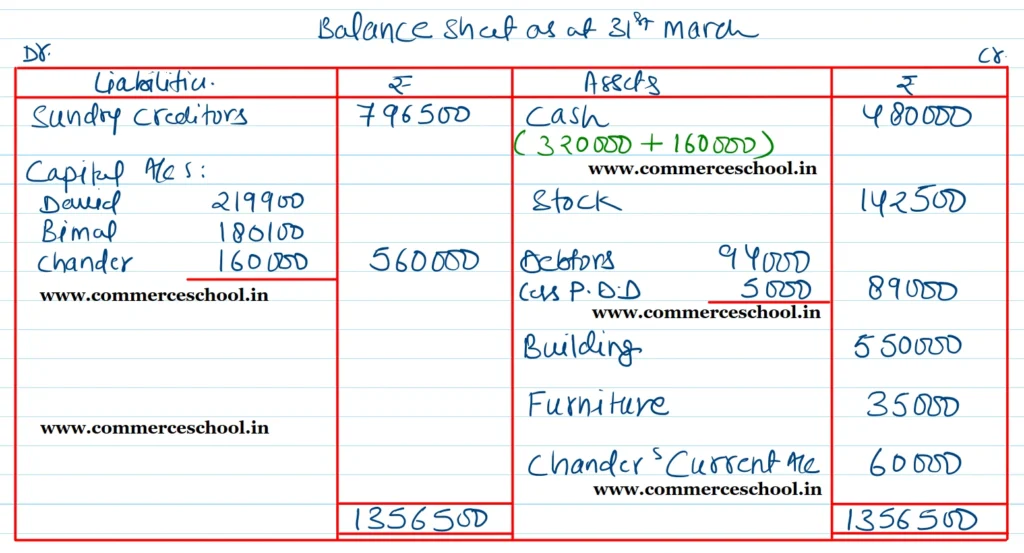 Balance Sheet as at 31st March
Dr. Cr.
Liabilities. ₹ Assets ₹
Sundry Creditors 796500 Cash 480000
(320000 + 160000)
www.commerceschool.in
Capital A/c s:
David 219900 Stock 142500
Bimal 180100
Chander 160000 560000 Debtors 94000
www.commerceschool.in Less P.D.D 5000 89000
www.commerceschool.in
Building 550000
Furniture 35000
www.commerceschool.in
Chander's Current A/c 60000
www.commerceschool.in
1356500 1356500